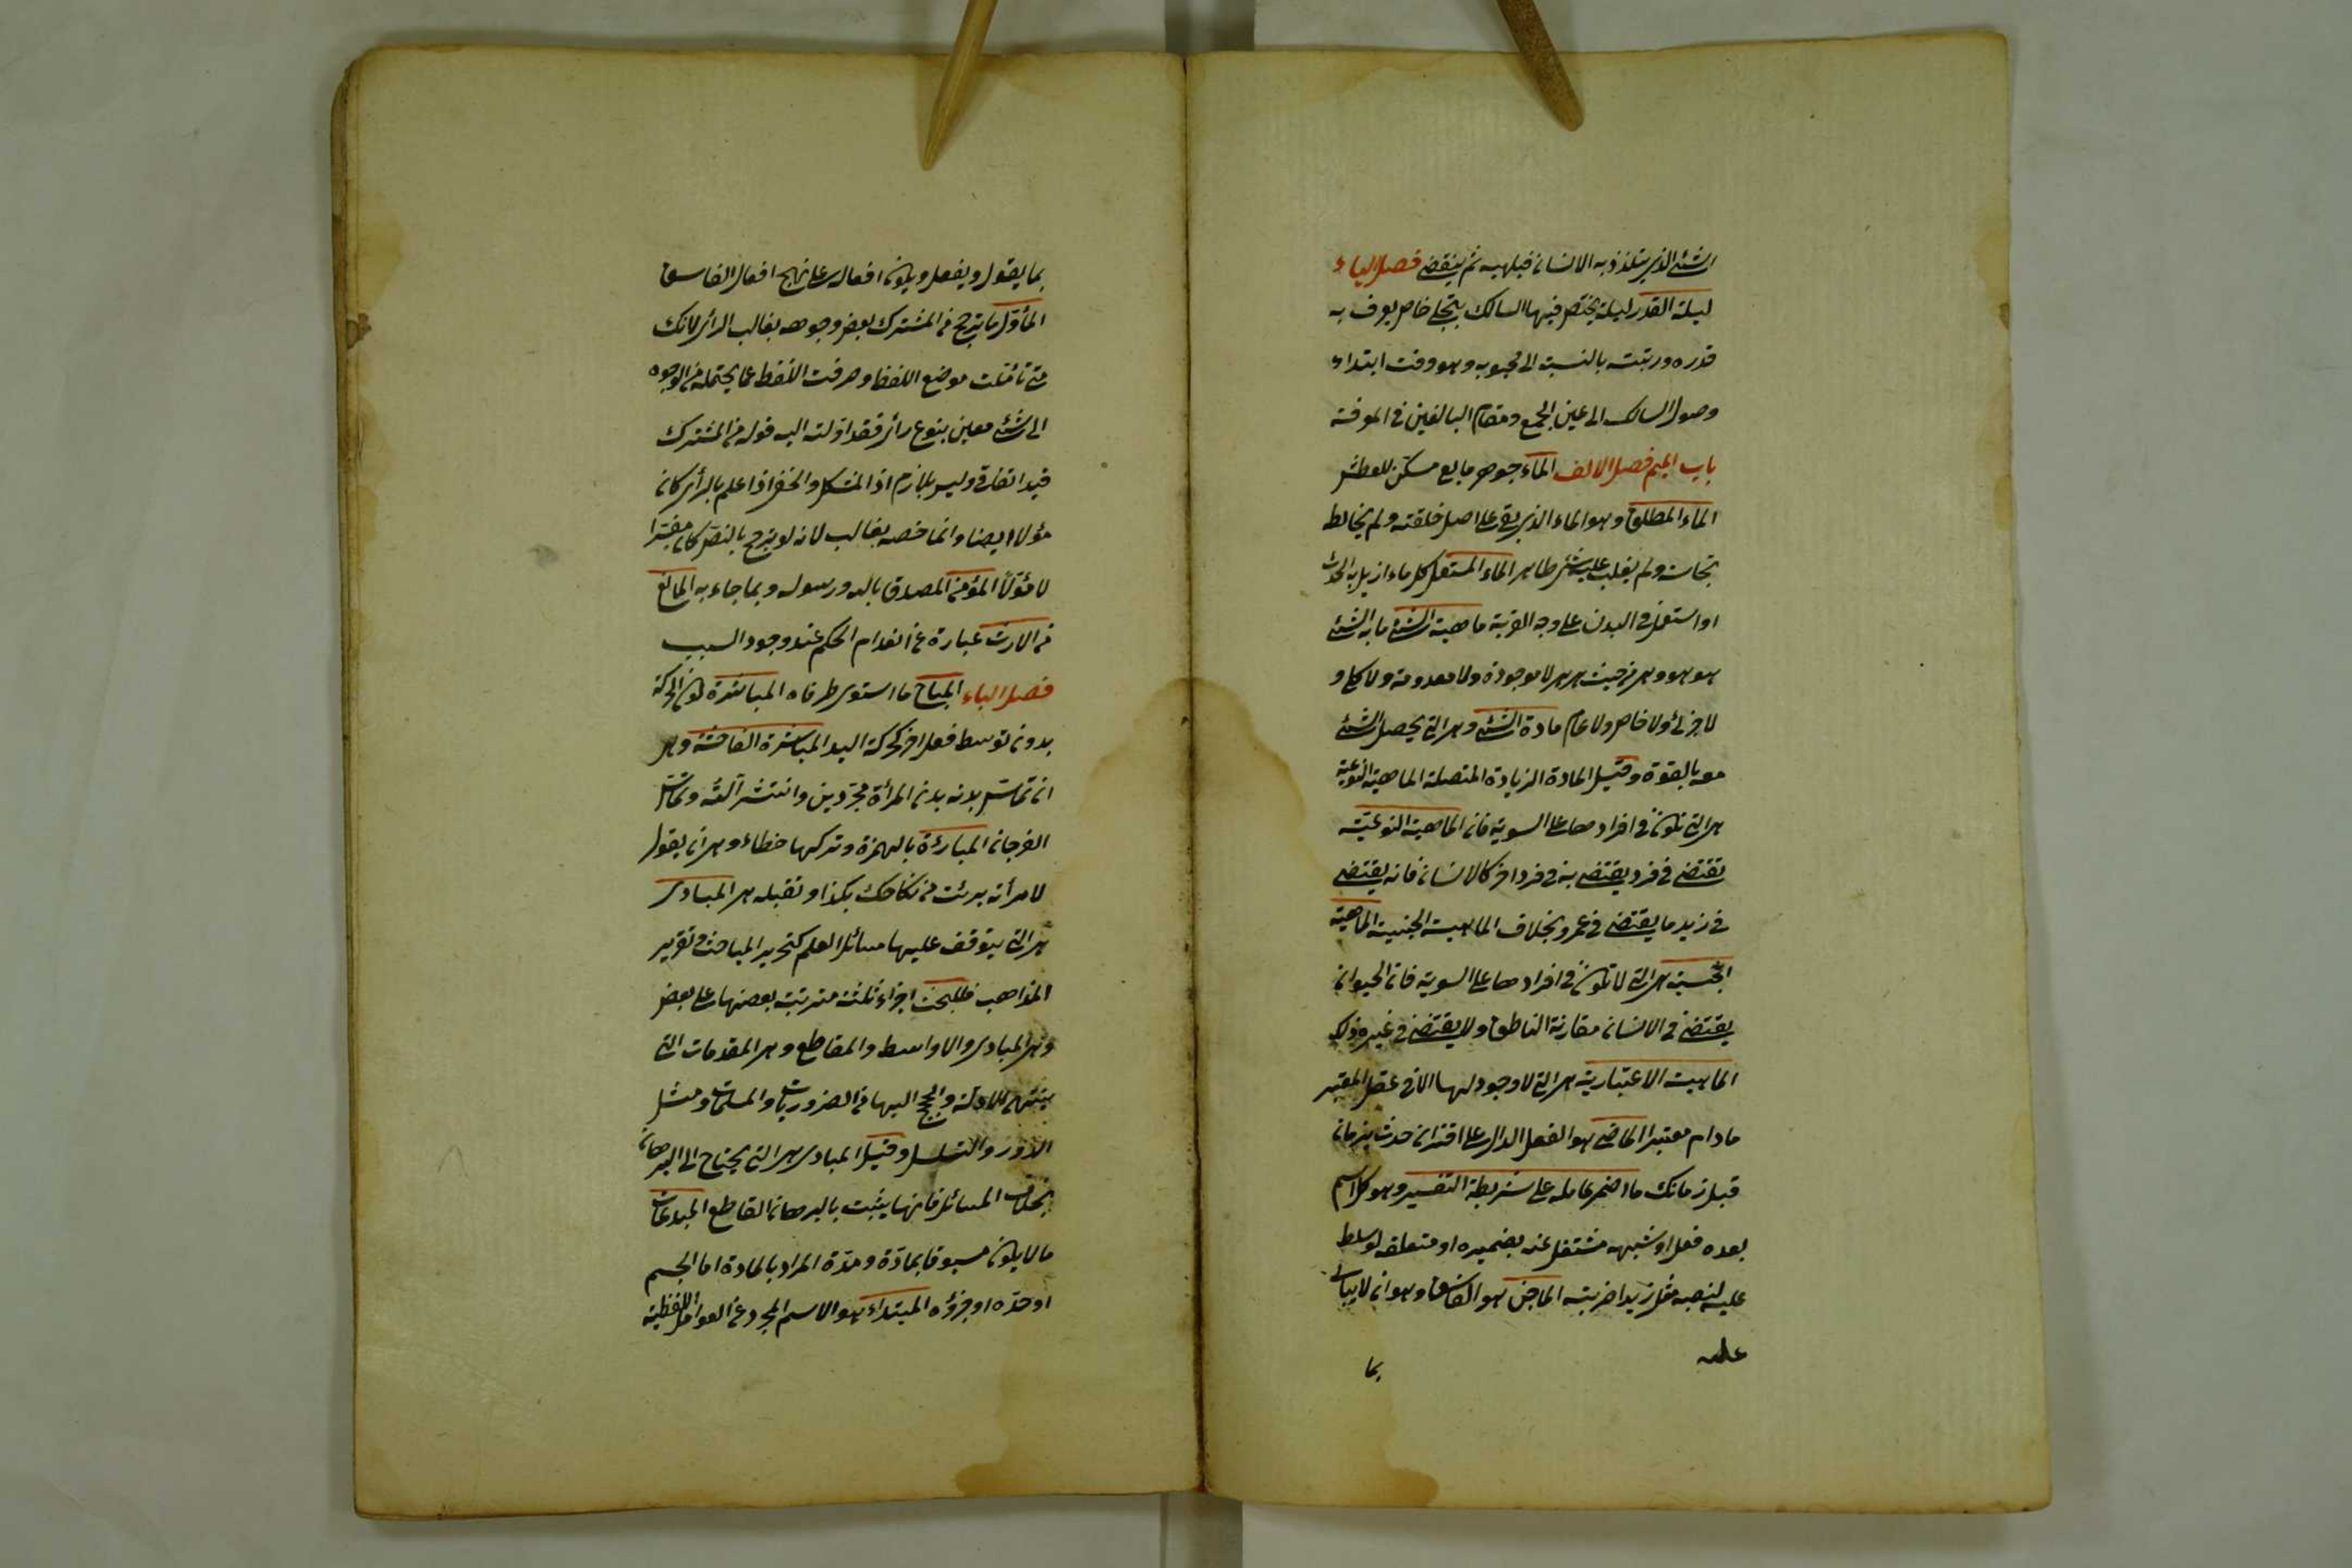 الشئ الذي يتلذذ به الانسان فيلهيه ثم ينقضي فصل الياء
ليلة القدر ليلة يختص فيها السالك بتجلي خاص يعرف به
قدره ورتبته بالنسبة الى محبوبه وهو وقت ابتداء
وصول السالك الى عين الجمع ومقام البالغين في المعرفة
باب الميم فصل الالف الماء جوهر مايع مسكن للعطش
الماء المطلق وهو الماء الذي بقي على اصل خلقته ولم يخالطه
نجاسة ولم يغلب عليه شئ طاهر الماء المستعمل كل ماء ازيل به الحدث
او استعمل في البدن على وجه القربة ماهية الشئ ما به الشئ
هو هو وهي من حيث هي هي لا موجودة ولا معدومة ولا كلي و
لا جزئي ولا خاص ولا عام مادة الشئ وهي التي يحصل الشئ
معه بالقوة وقيل المادة الزيادة المتصلة الماهية النوعية
هي التي تكون في افرادها على السوية فان الماهية النوعية
تقتضي في فرد يقتضيه في فرد اخر كالانسان فانه يقتضي
في زيد ما يقتضي في عمرو بخلاف الماهية الجنسية الماهية
الجنسية هي التي لا تكون في افرادها على السوية فان الحيوان
يقتضي في الانسان مقارنة الناطق ولا يقتضي في غيره ذلك
الماهية الاعتبارية هي التي لا وجود لها الا في عقل المعتبر
مادام معتبرا الماضي هو الفعل الدال على اقتران حدث بزمان
قبل زمانك ما اضمر عامله على شريطة التفسير وهو كل اسم
بعده فعل او شبهه مشتغل عنه بضميره او متعلقه لو سلط
عليه لنصبه مثل زيدا ضربته الماجن هو الفاسق وهو ان لا يبالي
عليه
بما
بما يقول ويفعل ويكون افعاله على نهج افعال الفاسق
المأول ما يترجح من المشترك بعض وجوهه بغالب الرأي لانك
متى تأملت موضع اللفظ وصرفت اللفظ عما يحتمله من الوجوه
الى شئ معين بنوع رأي فقد اولته اليه قوله من المشترك
قيد اتفاقي وليس بلازم اذ المشكل والخفي اذا علم بالرأي كان
مؤلا ايضا وانما خصه بغالب لانه لو يترجح بالنص كان مفسرا
لا مؤلا المؤمن المصدق بالله ورسوله وبما جاء به المانع
من الارث عبارة عن انعدام الحكم عند وجود السبب
فصل الباء المباح ما استوى طرفاه المباشرة كون الحركة
بدون توسط فعل اخر كحركة اليد المباشرة الفاحشة وهي
ان تماس بدنه بدن المرأة مجردين وانتشر آلته وتماس
الفرجان المبارئة بالهمزة وتركها خطاء وهي ان يقول
لامرأته برئت من نكاحك بكذا وتقبله هي المبادى
هي التي يتوقف عليها مسائل العلم كتحرير المباحث وتقرير
المذاهب فللبحث اجزاء ثلثة مترتبة بعضها على بعض
وهي المبادى والاواسط والمقاطع وهي المقدمات التي
ينتهي الادلة والحجج اليها من الضروريات والمسلمات ومثل
الدور والتسلسل وقيل المبادى هي التي يحتاج الى البرهان
بخلاف المسائل فانها يثبت بالبرهان القاطع المبدعات
ما لا يكون مسبوقا بمادة ومدة المراد بالمادة اما الجسم
او حده او جزؤه المبتداء هو الاسم المجرد عن العوامل اللفظية